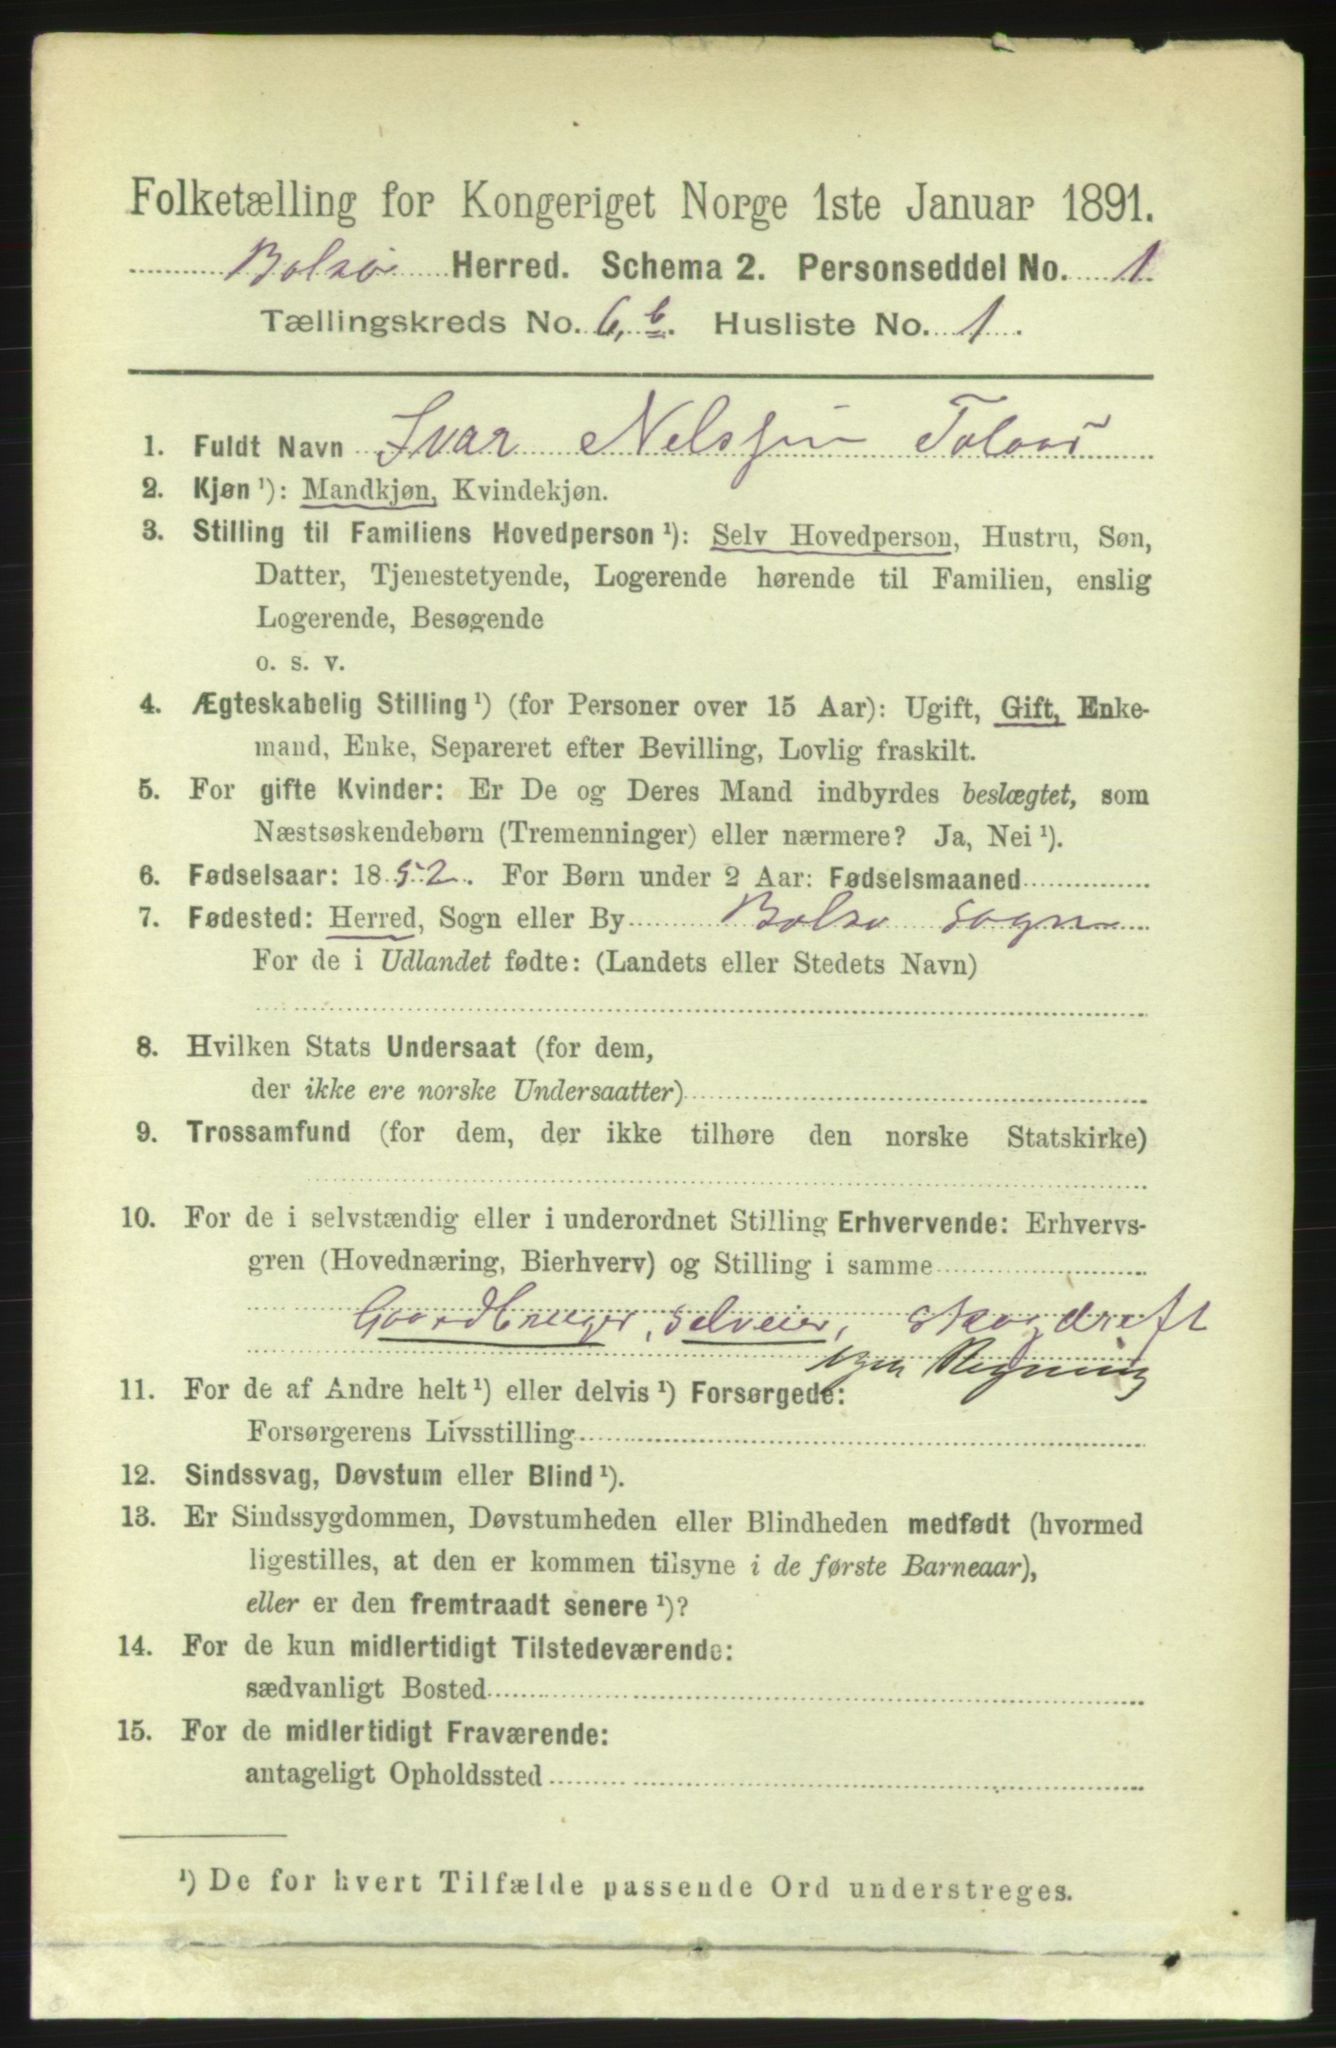 Folketælling for Kongeriget Norge 1ste Januar 1891.
Bolsø Herred. Schema 2. Personseddel No. 1
Tællingskreds No. 6, b. Husliste No. 1.
1. Fuldt Navn Ivar Nelssen
2. Kjøn ¹): Mandkjøn, Kvindekjøn.
3. Stilling til Familiens Hovedperson ¹): Selv Hovedperson, Hustru, Søn,
Datter, Tjenestetyende, Logerende hørende til Familien, enslig
Logerende, Besøgende
o. s. v.
4. Ægteskabelig Stilling ¹) (for Personer over 15 Aar): Ugift, Gift, Enke-
mand, Enke, Separeret efter Bevilling, Lovlig fraskilt.
5. For gifte Kvinder: Er De og Deres Mand indbyrdes beslægtet, som
Næstsøskendebørn (Tremenninger) eller nærmere? Ja, Nei ¹).
6. Fødselsaar: 1852. For Børn under 2 Aar: Fødselsmaaned
7. Fødested: Herred, Sogn eller By Bolsø Sogn
For de i Udlandet fødte: (Landets eller Stedets Navn)
8. Hvilken Stats Undersaat (for dem,
der ikke ere norske Undersaatter)
9. Trossamfund (for dem, der ikke tilhøre den norske Statskirke)
10. For de i selvstændig eller i underordnet Stilling Erhvervende: Erhvervs-
gren (Hovednæring, Bierhverv) og Stilling i samme
Gaardbruger, Selveier, Skogdreft
egen Regning
11. For de af Andre helt ¹) eller delvis ¹) Forsørgede:
Forsørgerens Livsstilling
12. Sindssvag, Døvstum eller Blind ¹).
13. Er Sindssygdommen, Døvstumheden eller Blindheden medfødt (hvormed
ligestilles, at den er kommen tilsyne i de første Barneaar),
eller er den fremtraadt senere ¹)?
14. For de kun midlertidigt Tilstedeværende:
sædvanligt Bosted
15. For de midlertidigt Fraværende:
antageligt Opholdssted
¹) De for hvert Tilfælde passende Ord understreges.